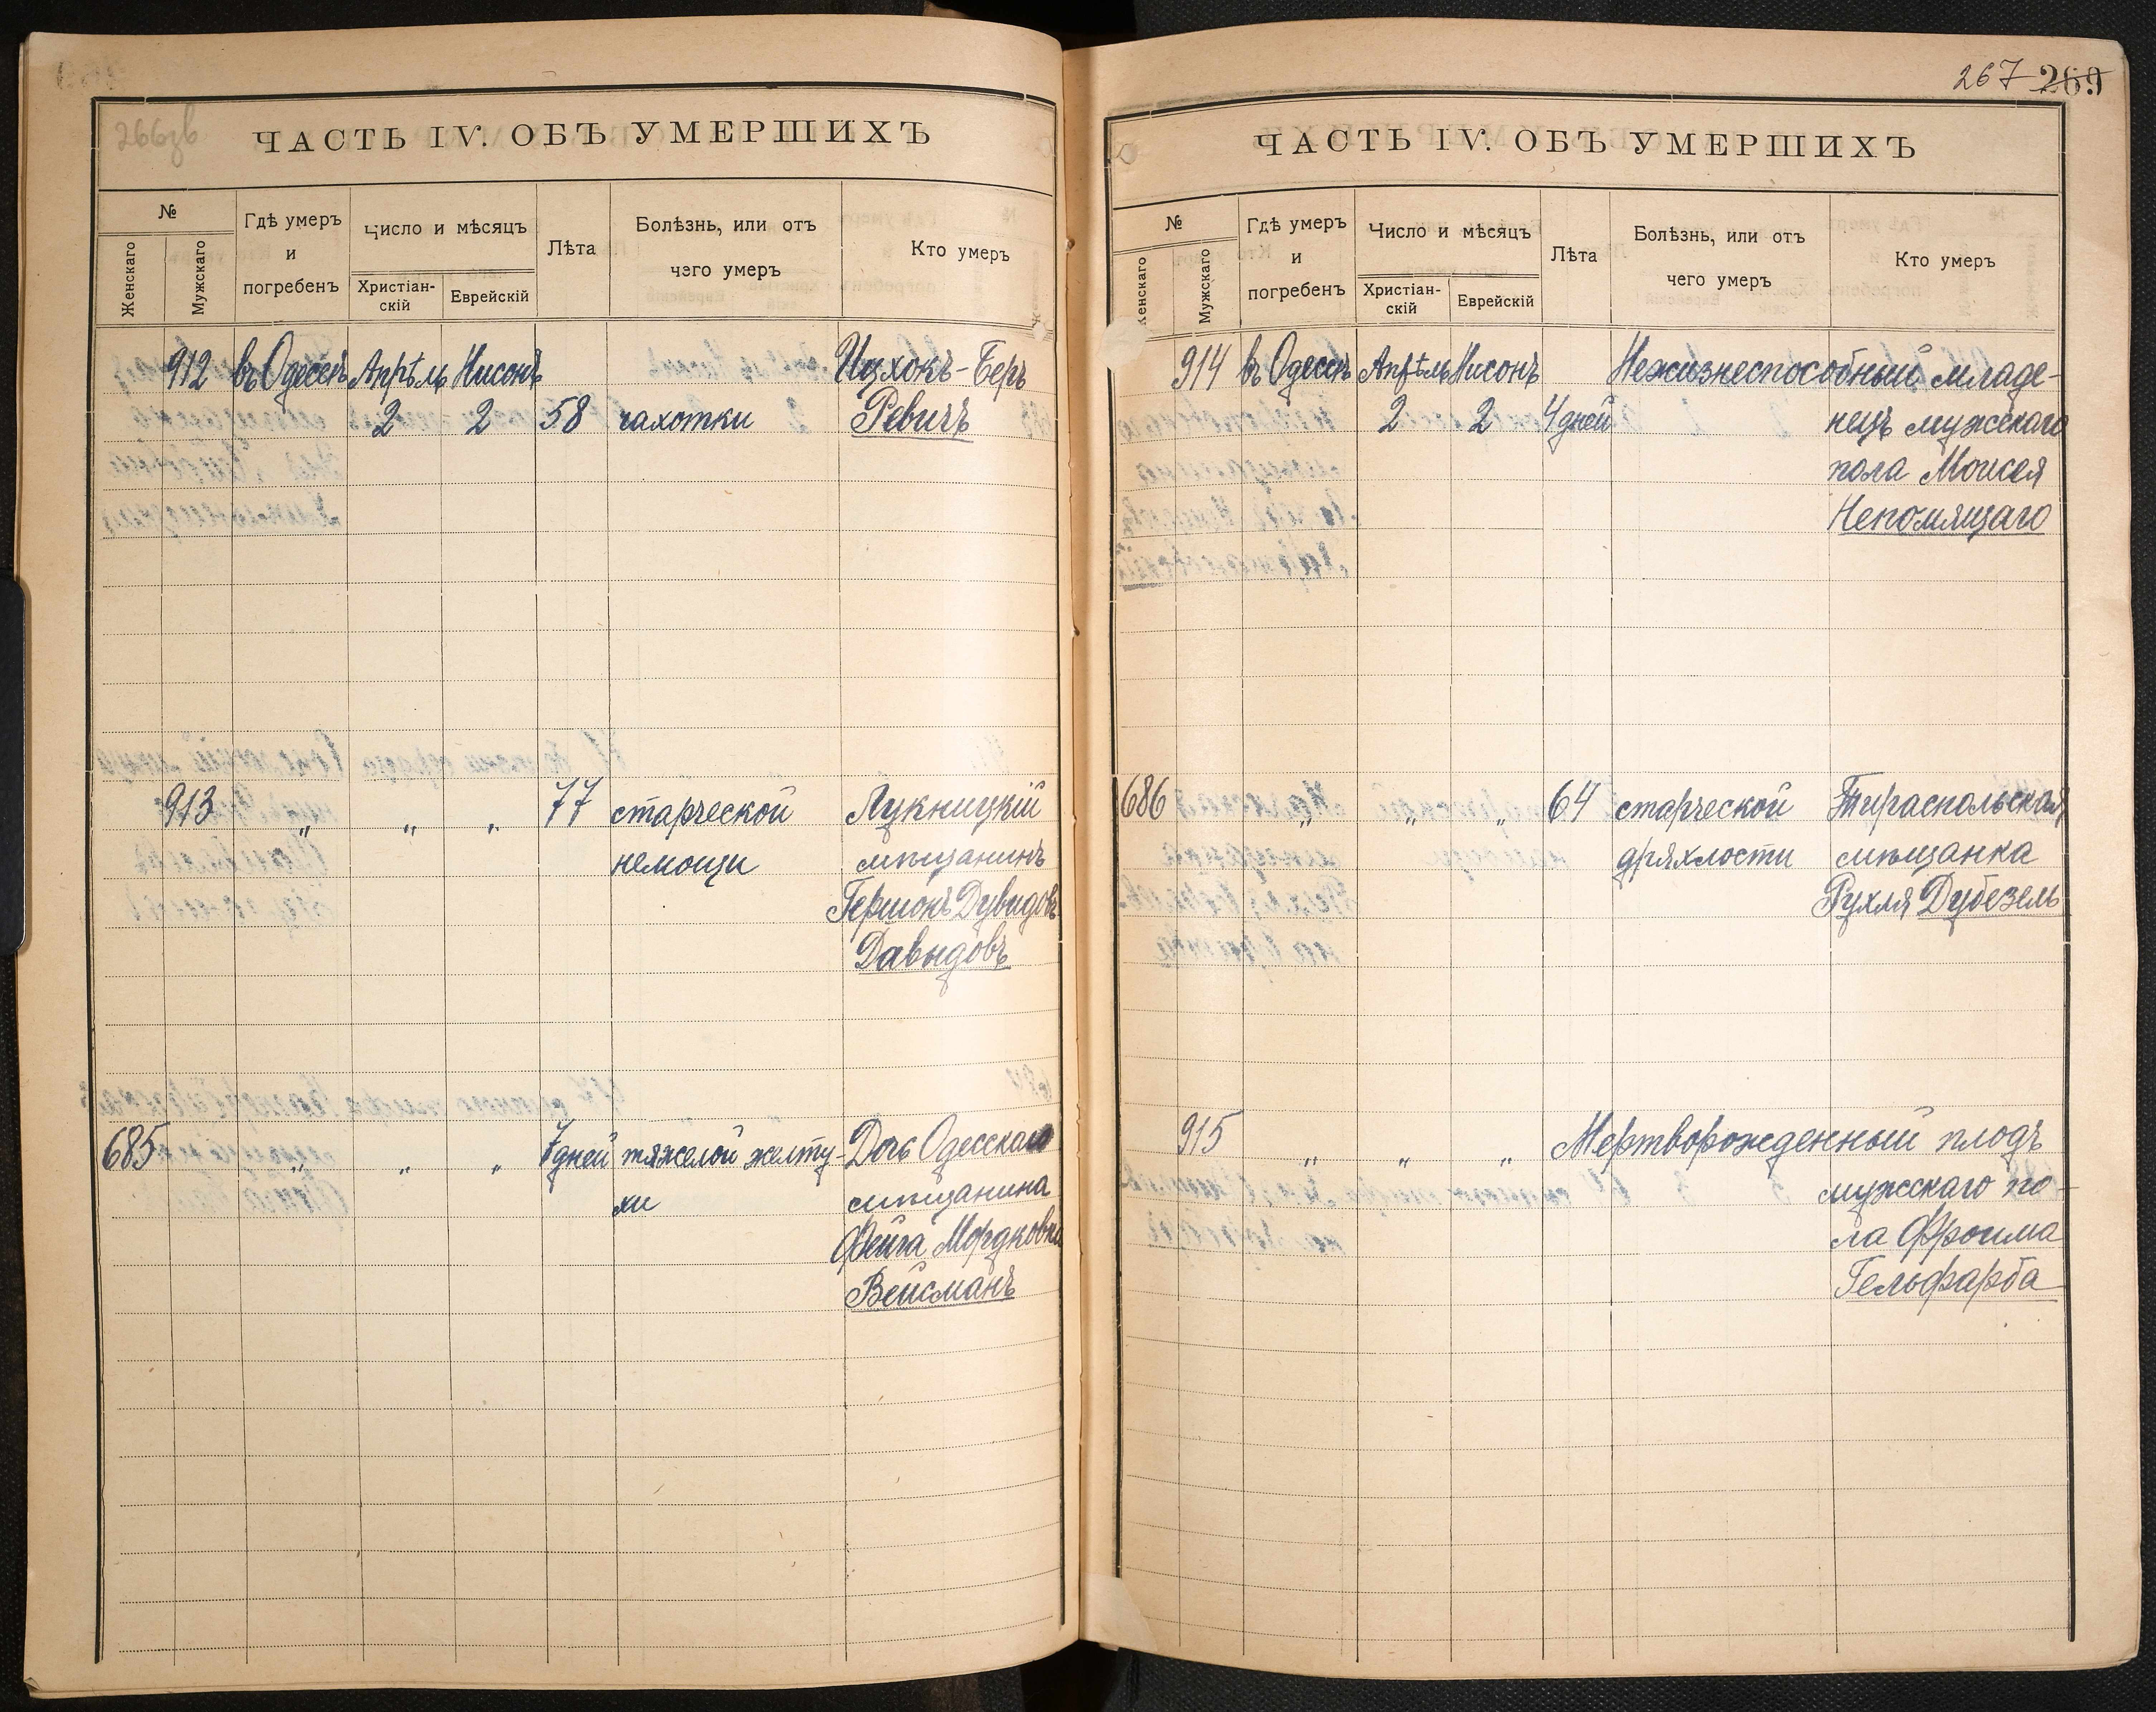 266зв
ЧАСТЬ IV. ОБЪ УМЕРШИХЪ
№
Женскаго
Мужскаго
Гдѣ умеръ
и
погребенъ
Число и мѣсяцъ
Христіан-
скій
Еврейскій
Лѣта
Болѣзнь, или отъ
чего умеръ
Кто умеръ
912 въ Одессѣ Апрѣль Нисонъ Ицхокъ-Беръ
2 2 58 чахотки Ревичъ
913 " " " 77 старческой Лукницкій
немощи мѣщанинъ
Гершонъ Дувидовъ
Давыдовъ
685 " " " 7 дней тяжелой желту- Дочь Одесскаго
хи мѣщанина
Фейга Мордковна
Вейсманъ
267 269
ЧАСТЬ IV. ОБЪ УМЕРШИХЪ
№
Женскаго
Мужскаго
Гдѣ умеръ
и
погребенъ
Число и мѣсяцъ
Христіан-
скій
Еврейскій
Лѣта
Болѣзнь, или отъ
чего умеръ
Кто умеръ
914 въ Одессѣ Апрѣль Нисонъ Нежизнеспособный младе-
2 2 4 дней нецъ мужскаго
пола Моисея
Непомящаго
686 " " " 64 старческой Тираспольская
дряхлости мѣщанка
Рухля Дубезель
915 " " " Мертворожденный плодъ
мужскаго по-
ла Фроима
Гельфарба